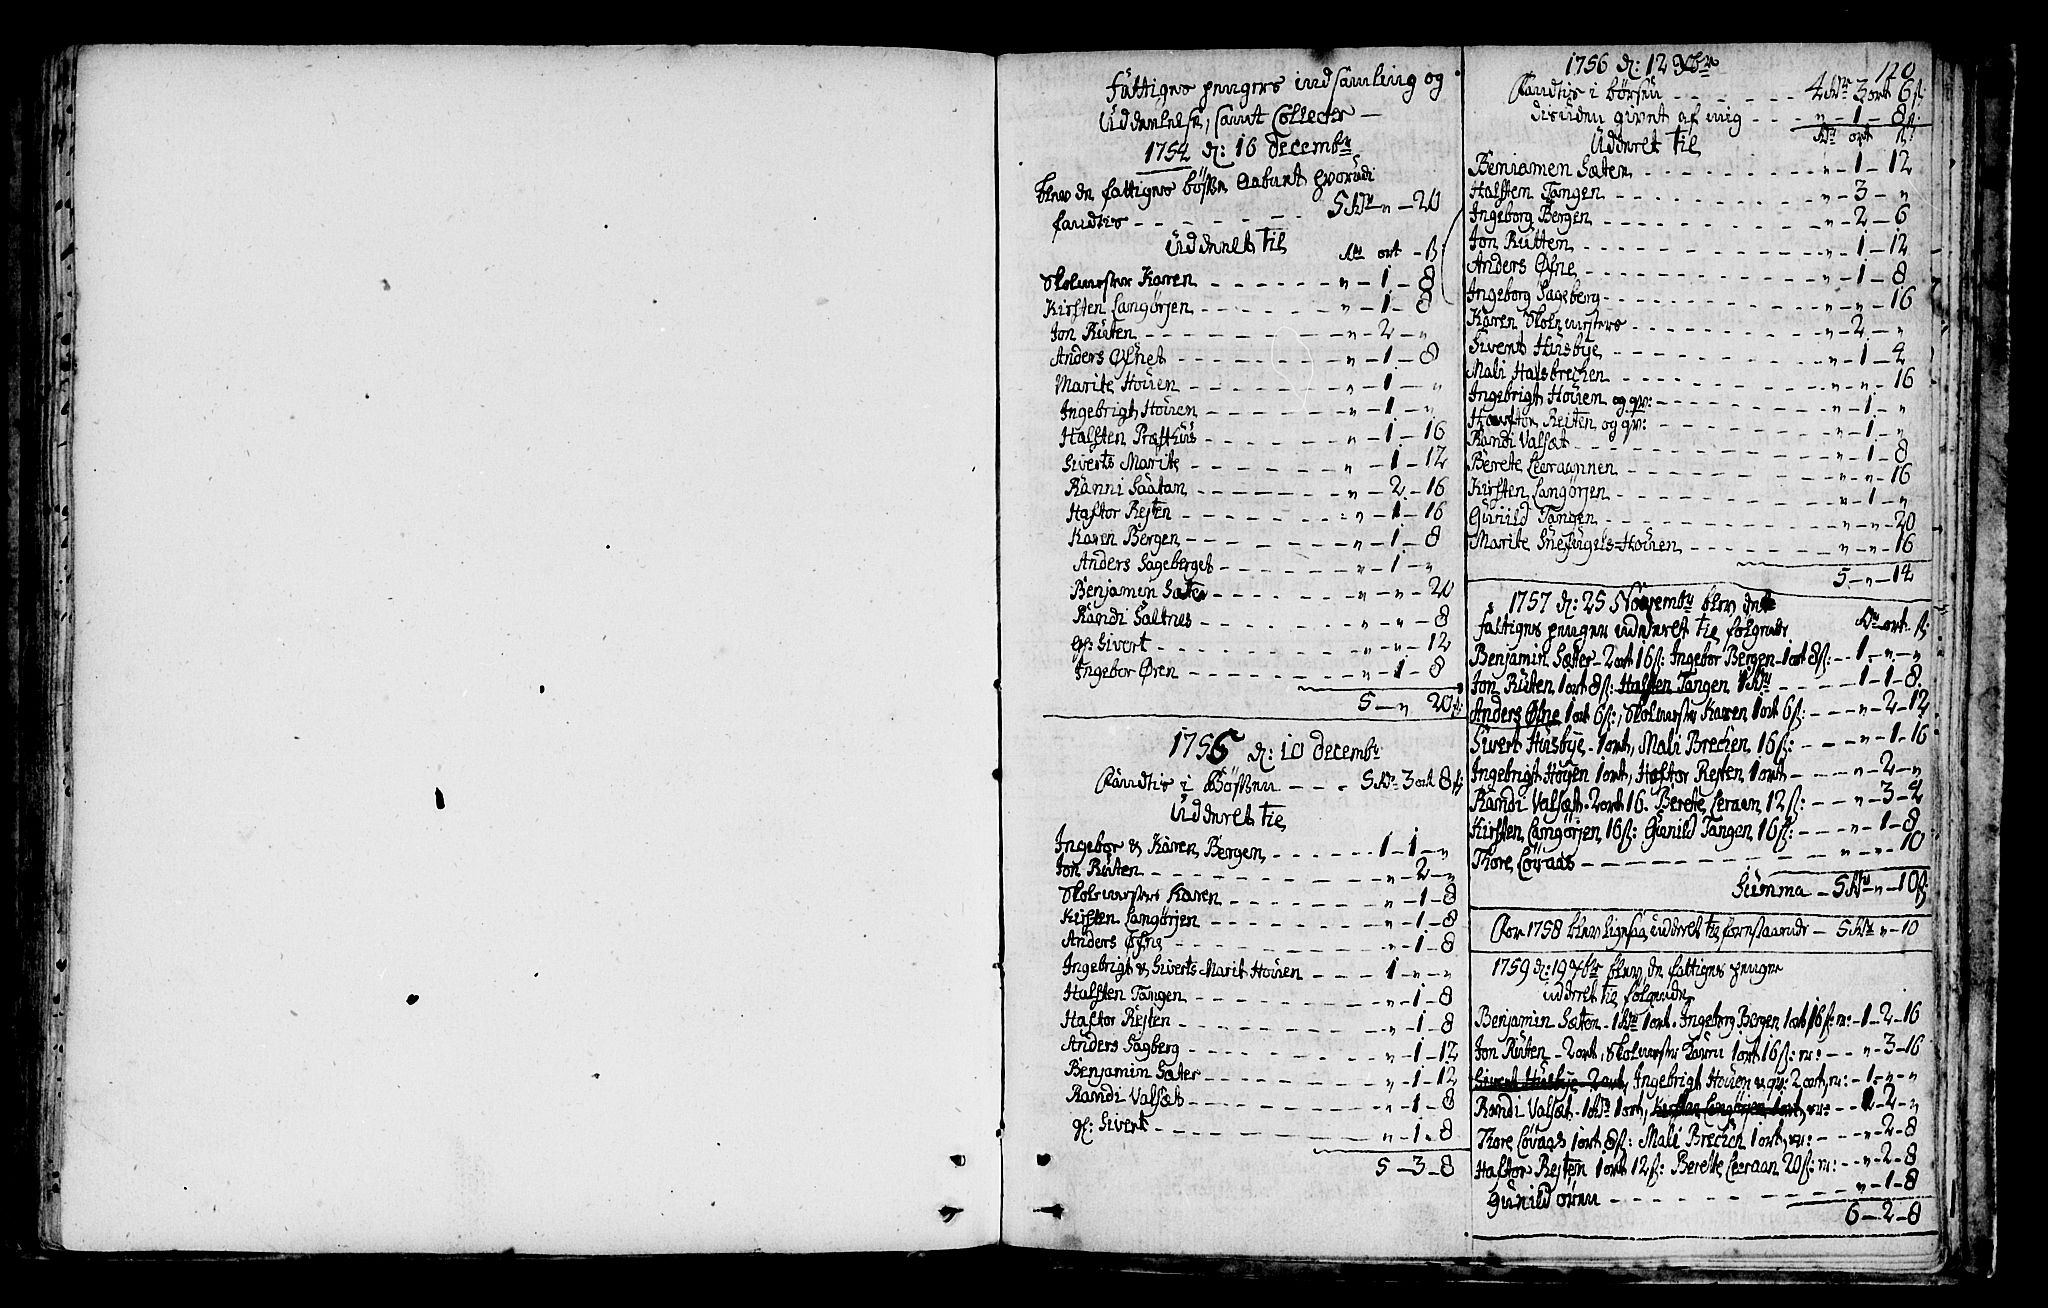 Fattiges penges indsamling og
Uddeelelse, samt Collecter —
1754 d: 16 decembr
blev de fattiges bössen aabnet hvorudi
fandtes - - - - - - - 5 Rdr „ - 20
Uddeelet til
Rdr ort - ß
Skolemester Karen - - - - - - „ - 1 - 8
Kirsten Langörjen - - - - - - „ - 1 - 8
Jon Ruten - - - - - - „ - 2 - „
Anders Øfnet - - - - - - „ - 1 - 8
Marite Houen - - - - - - „ - 1 - „
Ingebrigt Houen - - - - - - „ - 1 - „
Halsten Præsthus - - - - - - „ - 1 - 16
Siverts Marite - - - - - - „ - 1 - 12
Ranni Saatan - - - - - - „ - 2 - 16
Haftor Rejten - - - - - - „ - 1 - 16
Karen Bergen - - - - - - „ - 1 - 8
Anders Sageberget - - - - - - „ - 1 - „
Benjamin Sæter - - - - - - „ - „ - 20
Randi Saltnes - - - - - - „ - „ - 8
gl: Sivert - - - - - - „ - „ - 12
Ingebor Øren - - - - - - „ - 1 - 8
5 - „ 20 ß:
1755 d: 10 decembr
fandtes i Bössen - - - - 5 Rdr 3 ort 8 ß
Uddeelet til
Ingebor & Karen Bergen - - - - - - 1 - 1 - „
Jon Ruten - - - - - - „ - 2 - „
Skolemesters Karen - - - - - - „ - 1 - 8
Kirsten Langörjen - - - - - - „ - 1 - 8
Anders Øfne - - - - - - „ - 1 - 8
Ingebrigt & Siverts Marit Houen - - - 1 - „ - „
Halsten Tangen - - - - - - „ - 1 - 8
Haftor Rejten - - - - - - „ - 1 - 8
Anders Sagberg - - - - - - „ - 1 - 12
Benjamin Sæter - - - - - - „ - 1 - 12
Randi Valsæt - - - - - - „ - 1 - 8
gl: Sivert - - - - - - „ - 1 - 8
5 - 3 - 8
120
1756 d: 12 Xbr
fandtes i börsen - - - - - - 4 Rdr 3 ort 6 ß
desuden givet af mig - - - - „ - 1 - 8
Uddeelet til Rdr ort ß
Beniamen Sæter - - - - - - „ - 1 - 12
Halsten Tangen - - - - - - „ - 3 - „
Ingeborg Bergen - - - - - - „ - 2 - 6
Jon Rutten - - - - - - „ - 1 - 12
Anders Øfne - - - - - - „ - 1 - 8
Ingeborg Sageberg - - - - - - „ - „ - 16
Karen Skolemesters - - - - - - „ - 2 - „
Sivert Husbye - - - - - - „ - 1 - 4
Mali Halsbrechen - - - - - - „ - „ - 16
Ingebrigt Houen og qv: - - - - - - „ - 1 - „
Haftor Reiten og qv: - - - - - - „ - 1 - „
Randi Valsæt - - - - - - „ - 1 - 8
Berete Leeraannen - - - - - - „ - „ - 16
Kirsten Langörjen - - - - - - „ - 1 - „
Gunild Tangen - - - - - - „ - „ - 20
Marite Snefugels-Houen - - - - - - „ - „ - 16
5 - „ - 14
1757 d: 25 Novembr blev de
fattiges penger uddeelet til fölgende Rdr ort ß
Benjamin Sæter - 2 ort 16 ß: Ingebor Bergen - 1 ort 8 ß: - - 1 - „ - „
Jon Ruten 1 ort 8 ß: Halsten Tangen 1 Rdr - - - - - 1 - 1 - 8
Anders Øfne 1 ort 6 ß:, Skolemester Karen 1 ort 6 ß: - - - „ - 2 - 12
Sivert Husbye - 1 ort, Mali Brechen 16 ß: - - - „ - 1 - 16
Ingebrigt Houen 1 ort, Haftor Rejten 1 ort - - - - „ - 2 - „
Randi Valsæt - 2 ort 16. Berete Leraan 12 ß: - - - „ - 3 - 4
Kirsten Langörjen 16 ß: Gunild Tangen 16 ß: - - - „ - 1 - 8
Thore Lövaas - - - - - - „ - „ - 10
Summa - 5 Rdr „ - 10 ß:
For 1758 blev ligesaa uddeelt til forestaaende - 5 Rdr „ - 10
1759 d: 19 7br blev de fattiges penge
uddeelt til fölgende
Benjamin Sæter - 1 Rdr 1 ort. Ingeborg Bergen 1 ort 16 ß: er: - 1 - 2 - 16
Jon Ruten - 2 ort, Skolemester Karen 1 ort 16 ß: er: - - „ - 3 - 16
Sivert Husbye - 2 ort, Ingebrigt Houen & qv: 2 ort, er: - 1 - „ - „
Randi Valsæt - 1 Rdr 1 ort, Kirsten Langörjen 1 ort, er: - - 1 - 2 - „
Thore Lövaas 1 ort 8 ß: Mali Brechen 1 ort, er: - - - „ - 2 - 8
Haftor Rejten 1 ort 12 ß: Berette Leeraan 20 ß: er: - - „ - 2 - 8
Gunild ören - - - - - - „ - 1 - 8
6 - 2 - 8